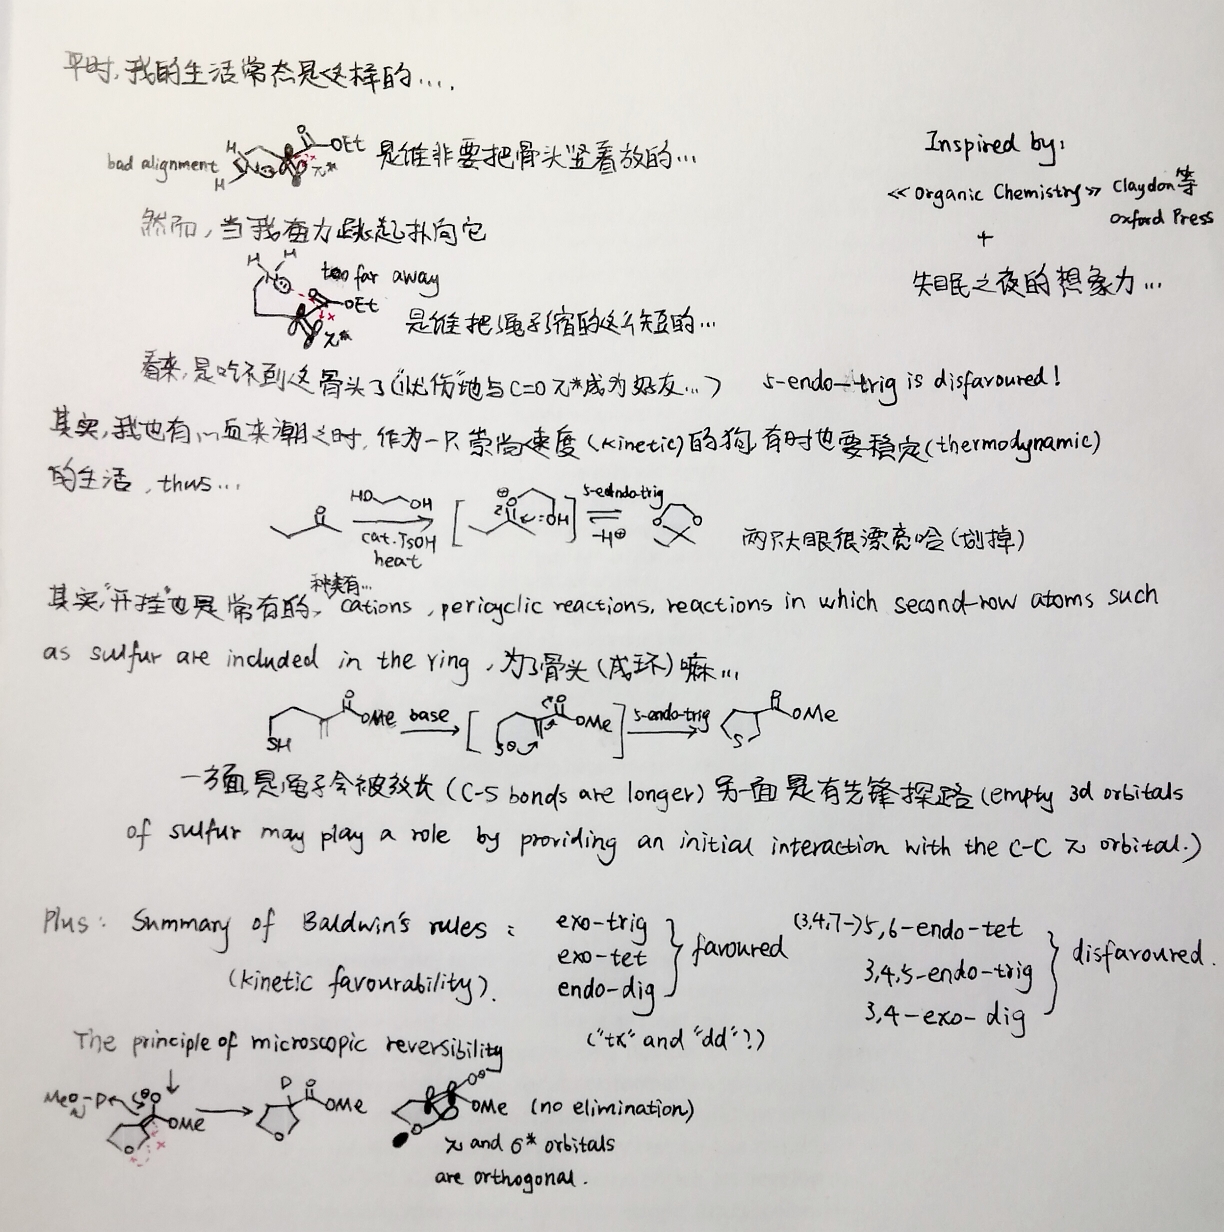 平时,我的生活常态是这样的....
bad alignment
H
H
N
OEt
π*
是谁非要把骨头竖着放的...
Inspired by:
<<Organic Chemistry>> Claydon等
Oxford Press
+
失眠之夜的想象力...
然而,当我奋力跳起扑向它
H H
N
too far away
OEt
π*
是谁把绳子缩的这么短的...
看来,是吃不到这骨头了("忧伤"地与C=O π*成为好友...) 5-endo-trig is disfavoured!
其实,我也有心血来潮之时,作为一只崇尚速度(kinetic)的狗,有时也要稳定(thermodynamic)
的生活,thus...
O
HO OH
cat. TsOH
heat
OH
5-endo-trig
-H⊕
O O
两只大眼很漂亮哈(划掉)
种类有...
其实,"开挂"也是常有的, cations, pericyclic reactions, reactions in which second-row atoms such
as sulfur are included in the ring,为了骨头(成环)嘛...
SH
O
OMe
base
S⊖
O
OMe
5-endo-trig
S
O
OMe
一方面是绳子会被放长(C-S bonds are longer)另一面是有先锋探路(empty 3d orbitals
of sulfur may play a role by providing an initial interaction with the C-C π orbital.)
Plus: Summary of Baldwin's rules:
(kinetic favourability).
exo-trig
exo-tet
endo-dig
favoured
("tx" and "dd"?)
(3,4,7-)5,6-endo-tet
3,4,5-endo-trig
3,4-exo-dig
disfavoured.
The principle of microscopic reversibility
MeO-D
⊖O
OMe
O
D
O
OMe
O
O⊖
OMe (no elimination)
π and σ* orbitals
are orthogonal.